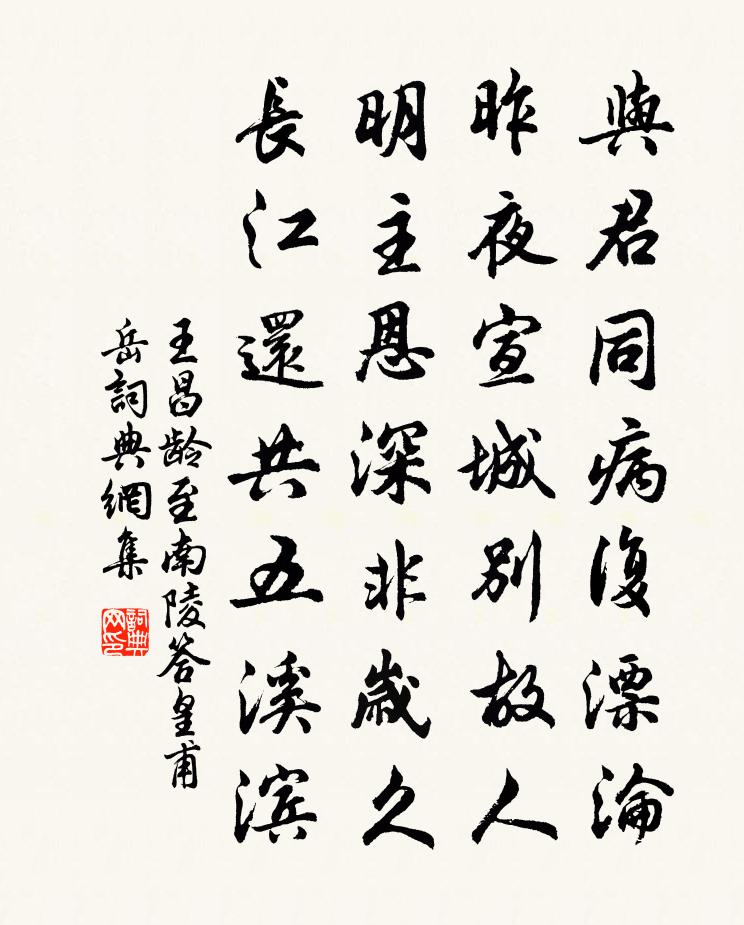 與君同病復漂淪
昨夜宣城別故人
明主恩深非歲久
長江還共五溪滨
王昌龄至南陵答皇甫
岳詞典網集
詞典网印